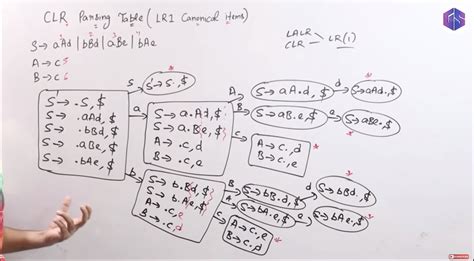 CLR Parsing Table (LR1 Canonical Items)
LALR
CLR
LR(1)
S→ aAd | bBd | aBe | bAe
1 2 3 4
A→c 5
B→c 6
S
S'→S.,$
S'→ .S,$
S→ .aAd,$
S→ .bBd,$
S→ .aBe,$
S→ .bAe,$
a
S→ a.Ad,$
S→ a.Be,$
A→ .c,d
B→ .c,e
A
S→ aA.d,$
d
S→aAd.,$
B
S→ aB.e,$
e
S→aBe.,$
c
A→c.,d
B→c.,e
b
S→ b.Bd,$
S→ b.Ae,$
A→ .c,e
B→ .c,d
B
S→bB.d,$
d
S→bBd.,$
A
S→bA.e,$
e
S→bAe.,$
c
A→c.,e
B→c.,d